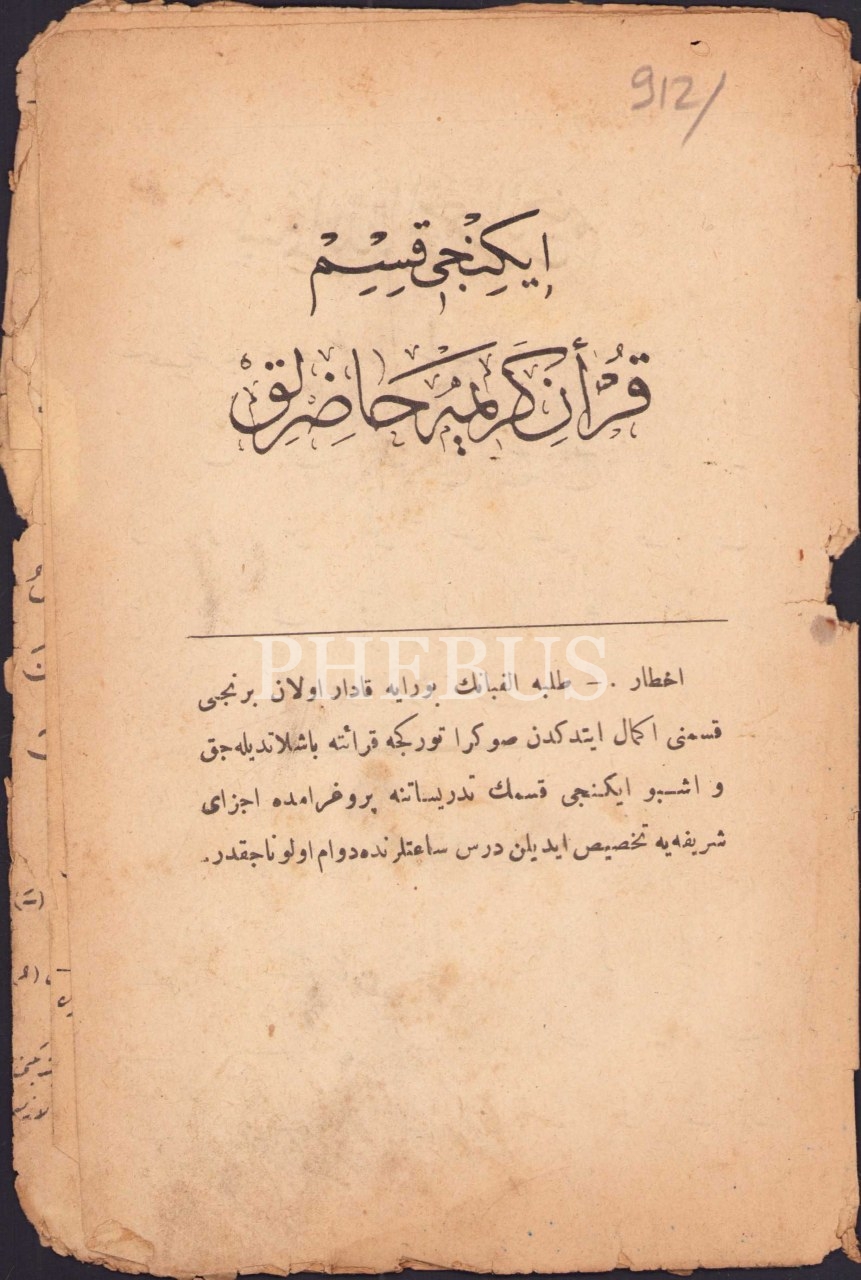 912/
ايكنجى قسم
قرأن كريمه حاضرلق
PHEBUS
اخطار .— طلبه الفبانك بورايه قادار اولان برنجى
قسمنى اكمال ايتدكدن صوكرا توركجه قرائته باشلاتديله جق
و اشبو ايكنجى قسمك تدريساتنه پروغرامده اجزاى
شريفه يه تخصيص ايديلن درس ساعتلرنده دوام اولوناجقدر.